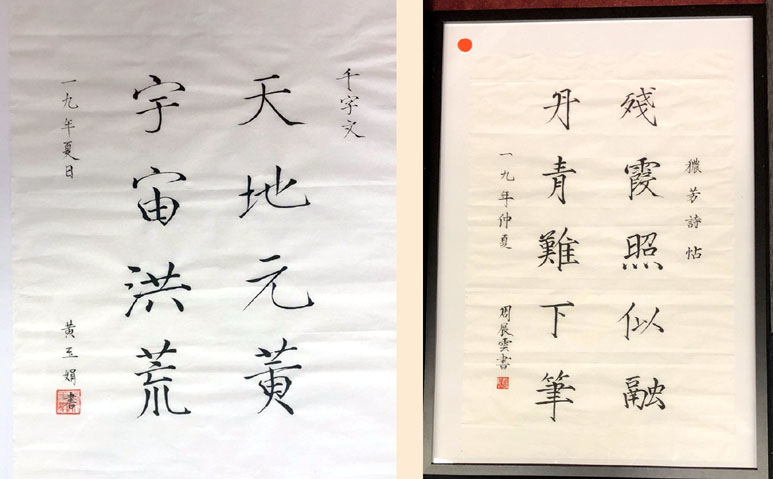 千字文
天地元黃
宇宙洪荒
一九年夏日
黃玉娟書
穠芳詩帖
殘霞照似融
丹青難下筆
一九年仲夏
周展雲書